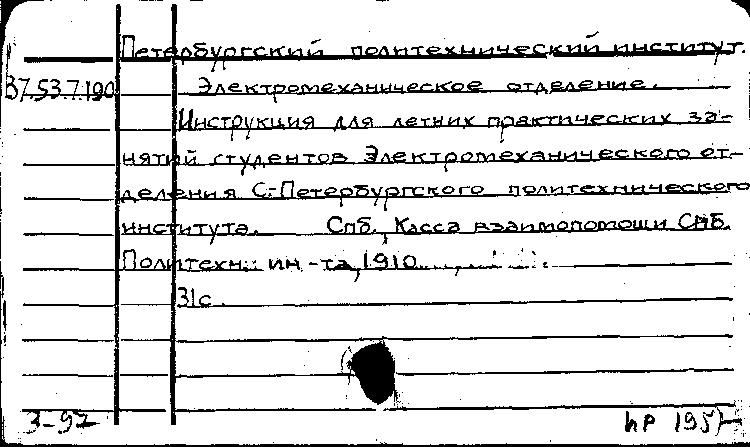 Петербургский политехнический институт.
37.53.7.190 Электромеханическое отделение.
Инструкция для летних практических за-
нятий студентов Электромеханического от-
деления С.-Петербургского политехнического
института. Спб., Касса взаимопомощи СПБ.
Политехн. ин-та, 1910
31с.
3-97